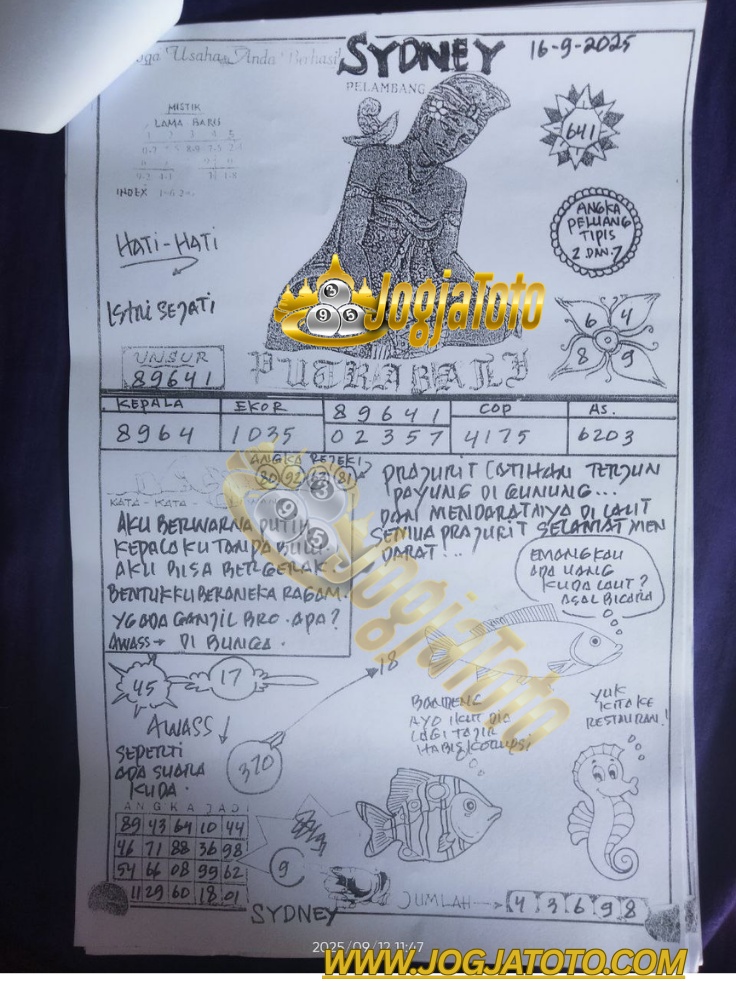 Usaha Anda Berhasil
SYDNEY
16-9-2025
PELAMBANG
MISTIK
LAMA BARU
1 2 3 4 5
INDEX
641
ANGKA
PELUANG
TIPIS
2 DAN 7
HATI-HATI
ISTRI SEJATI
6 4
8 9
UNSUR
89641
JogjaToto
PUTRA BALI
KEPALA EKOR 89641 COP AS.
8964 1035 02357 4175 6203
ANGKA REJEKI
80 92 63 81
KATA-KATA
AKU BERWARNA PUTIH
KEPALAKU TANPA BULU
AKU BISA BERGERAK
BENTUKKU BERANEKA RAGAM.
YG ADA GANJIL BRO. APA?
AWASS → DI BUNGA.
PRAJURIT LATIHAN TERJUN
PAYUNG DI GUNUNG...
DAN MENDARATNYA DI LAUT
SEMUA PRAJURIT SELAMAT MEN
DARAT!...
EMANG KAU
ADA UANG
KUDA LAUT?
ASAL BICARA
JogjaToto
45
17
18
AWASS
SEPERTI
ADA SUARA
KUDA.
370
BANDENG
AYO IKUT DIA
LAGI TAJIR
HABIS KORUPSI
YUK
KITA KE
RESTAURAN!
ANGKA JADI
89 43 64 10 44
46 71 88 36 98
54 66 08 99 62
11 29 60 18 01
9
SYDNEY
JUMLAH → 4 3 6 9 8
2025/09/12 11:47
WWW.JOGJATOTO.COM